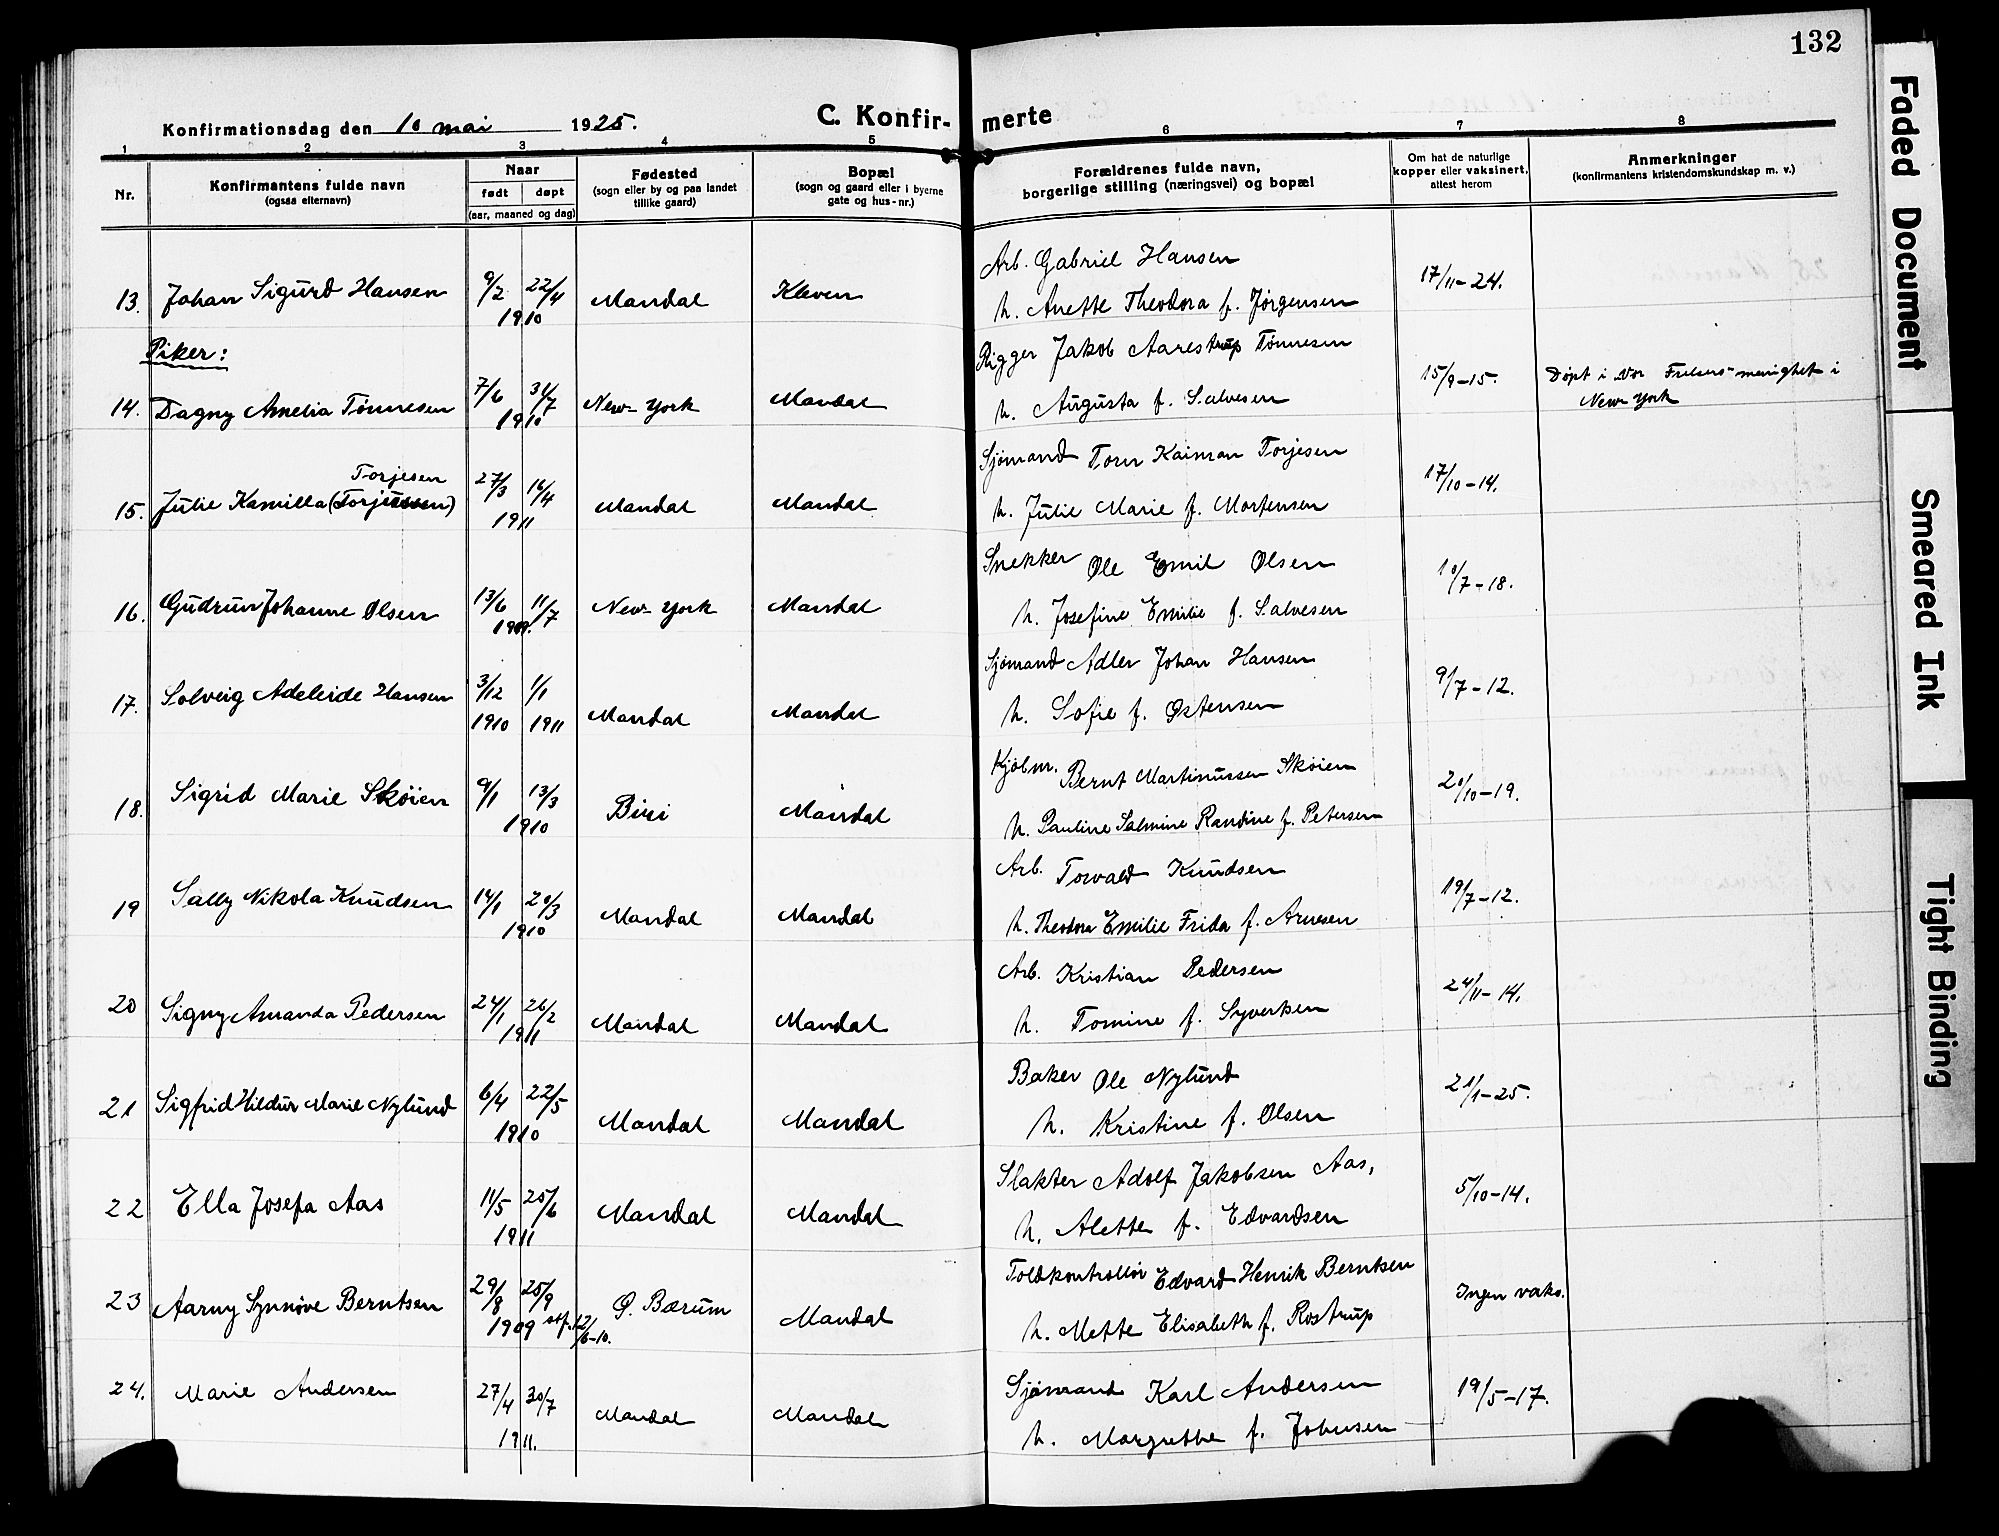 132
Konfirmationsdag den 10 mai 1925.
C. Konfirmerte
1 2 3 4 5 6 7 8
Nr.
Konfirmantens fulde navn
(ogsaa efternavn)
Naar
født døpt
(aar, maaned og dag)
Fødested
(sogn eller by og paa landet
tillike gaard)
Bopæl
(sogn og gaard eller i byerne
gate og hus-nr.)
Forældrenes fulde navn,
borgerlige stilling (næringsvei) og bopæl
Om hat de naturlige
kopper eller vaksinert,
attest herom
Anmerkninger
(konfirmantens kristendomskundskap m. v.)
13. Johan Sigurd Hansen 9/2 22/4 1910 Mandal Kleven Arb. Gabriel Hansen 17/11-24.
h. Anette Theodora f. Jørgensen
Piker:
14. Dagny Amelia Tønnesen 7/6 31/7 1910 New-York Mandal Rigger Jakob Aarestrup Tönnesen 15/9-15. Døpt i Vor Frelsers-menighet i
h. Augusta f. Salvesen New York
Torjesen
15. Julie Kamilla (Torjussen) 27/3 16/4 1911 Mandal Mandal Sjømand Torn Kaiman Torjesen 17/10-14.
h. Julie Marie f. Mortensen
16. Gudrun Johanne Olsen 13/6 11/7 1909. New-York Mandal Snekker Ole Emil Olsen 10/7-18.
h. Josefine Emilie f. Salvesen
17. Solveig Adeleide Hansen 3/12 1910 1/1 1911 Mandal Mandal Sjømand Adler Johan Hansen 9/7-12.
h. Sofie f. Østensen
18. Sigrid Marie Skøien 9/1 13/3 1910 Biri Mandal Kjøbm. Bernt Martinussen Skøien 20/10-19.
h. Pauline Salmine Randine f. Petersen
19 Sally Nikola Knudsen 14/1 20/3 1910 Mandal Mandal Arb. Torvald Knudsen 19/7-12.
h. Theodora Emilie Frida f. Arnesen
20 Signy Amanda Pedersen 24/1 26/2 1911 Mandal Mandal Arb. Kristian Pedersen 24/11-14.
h. Tomine f. Syvertsen
21 Sigfrid Hildur Marie Nylund 6/4 22/5 1910 Mandal Mandal Baker Ole Nylund 21/1-25.
h. Kristine f. Olsen
22 Ella Josefa Aas 11/5 25/6 1911 Mandal Mandal Slakter Adolf Jakobsen Aas, 5/10-14.
h. Alette f. Edvardsen
23 Aarny Synnøve Berntsen 29/8 25/9 1909 stf. 12/6-10. Ø. Bærum Mandal Toldkontrollør Edvard Henrik Berntsen Ingen vaks.
h. Mette Elisabeth f. Rostrup
24. Marie Andersen 27/4 30/7 1911. Mandal Mandal Sjømand Karl Andersen 19/5-17.
h. Margrethe f. Johnsen
Faded Document
Smeared Ink
Tight Binding